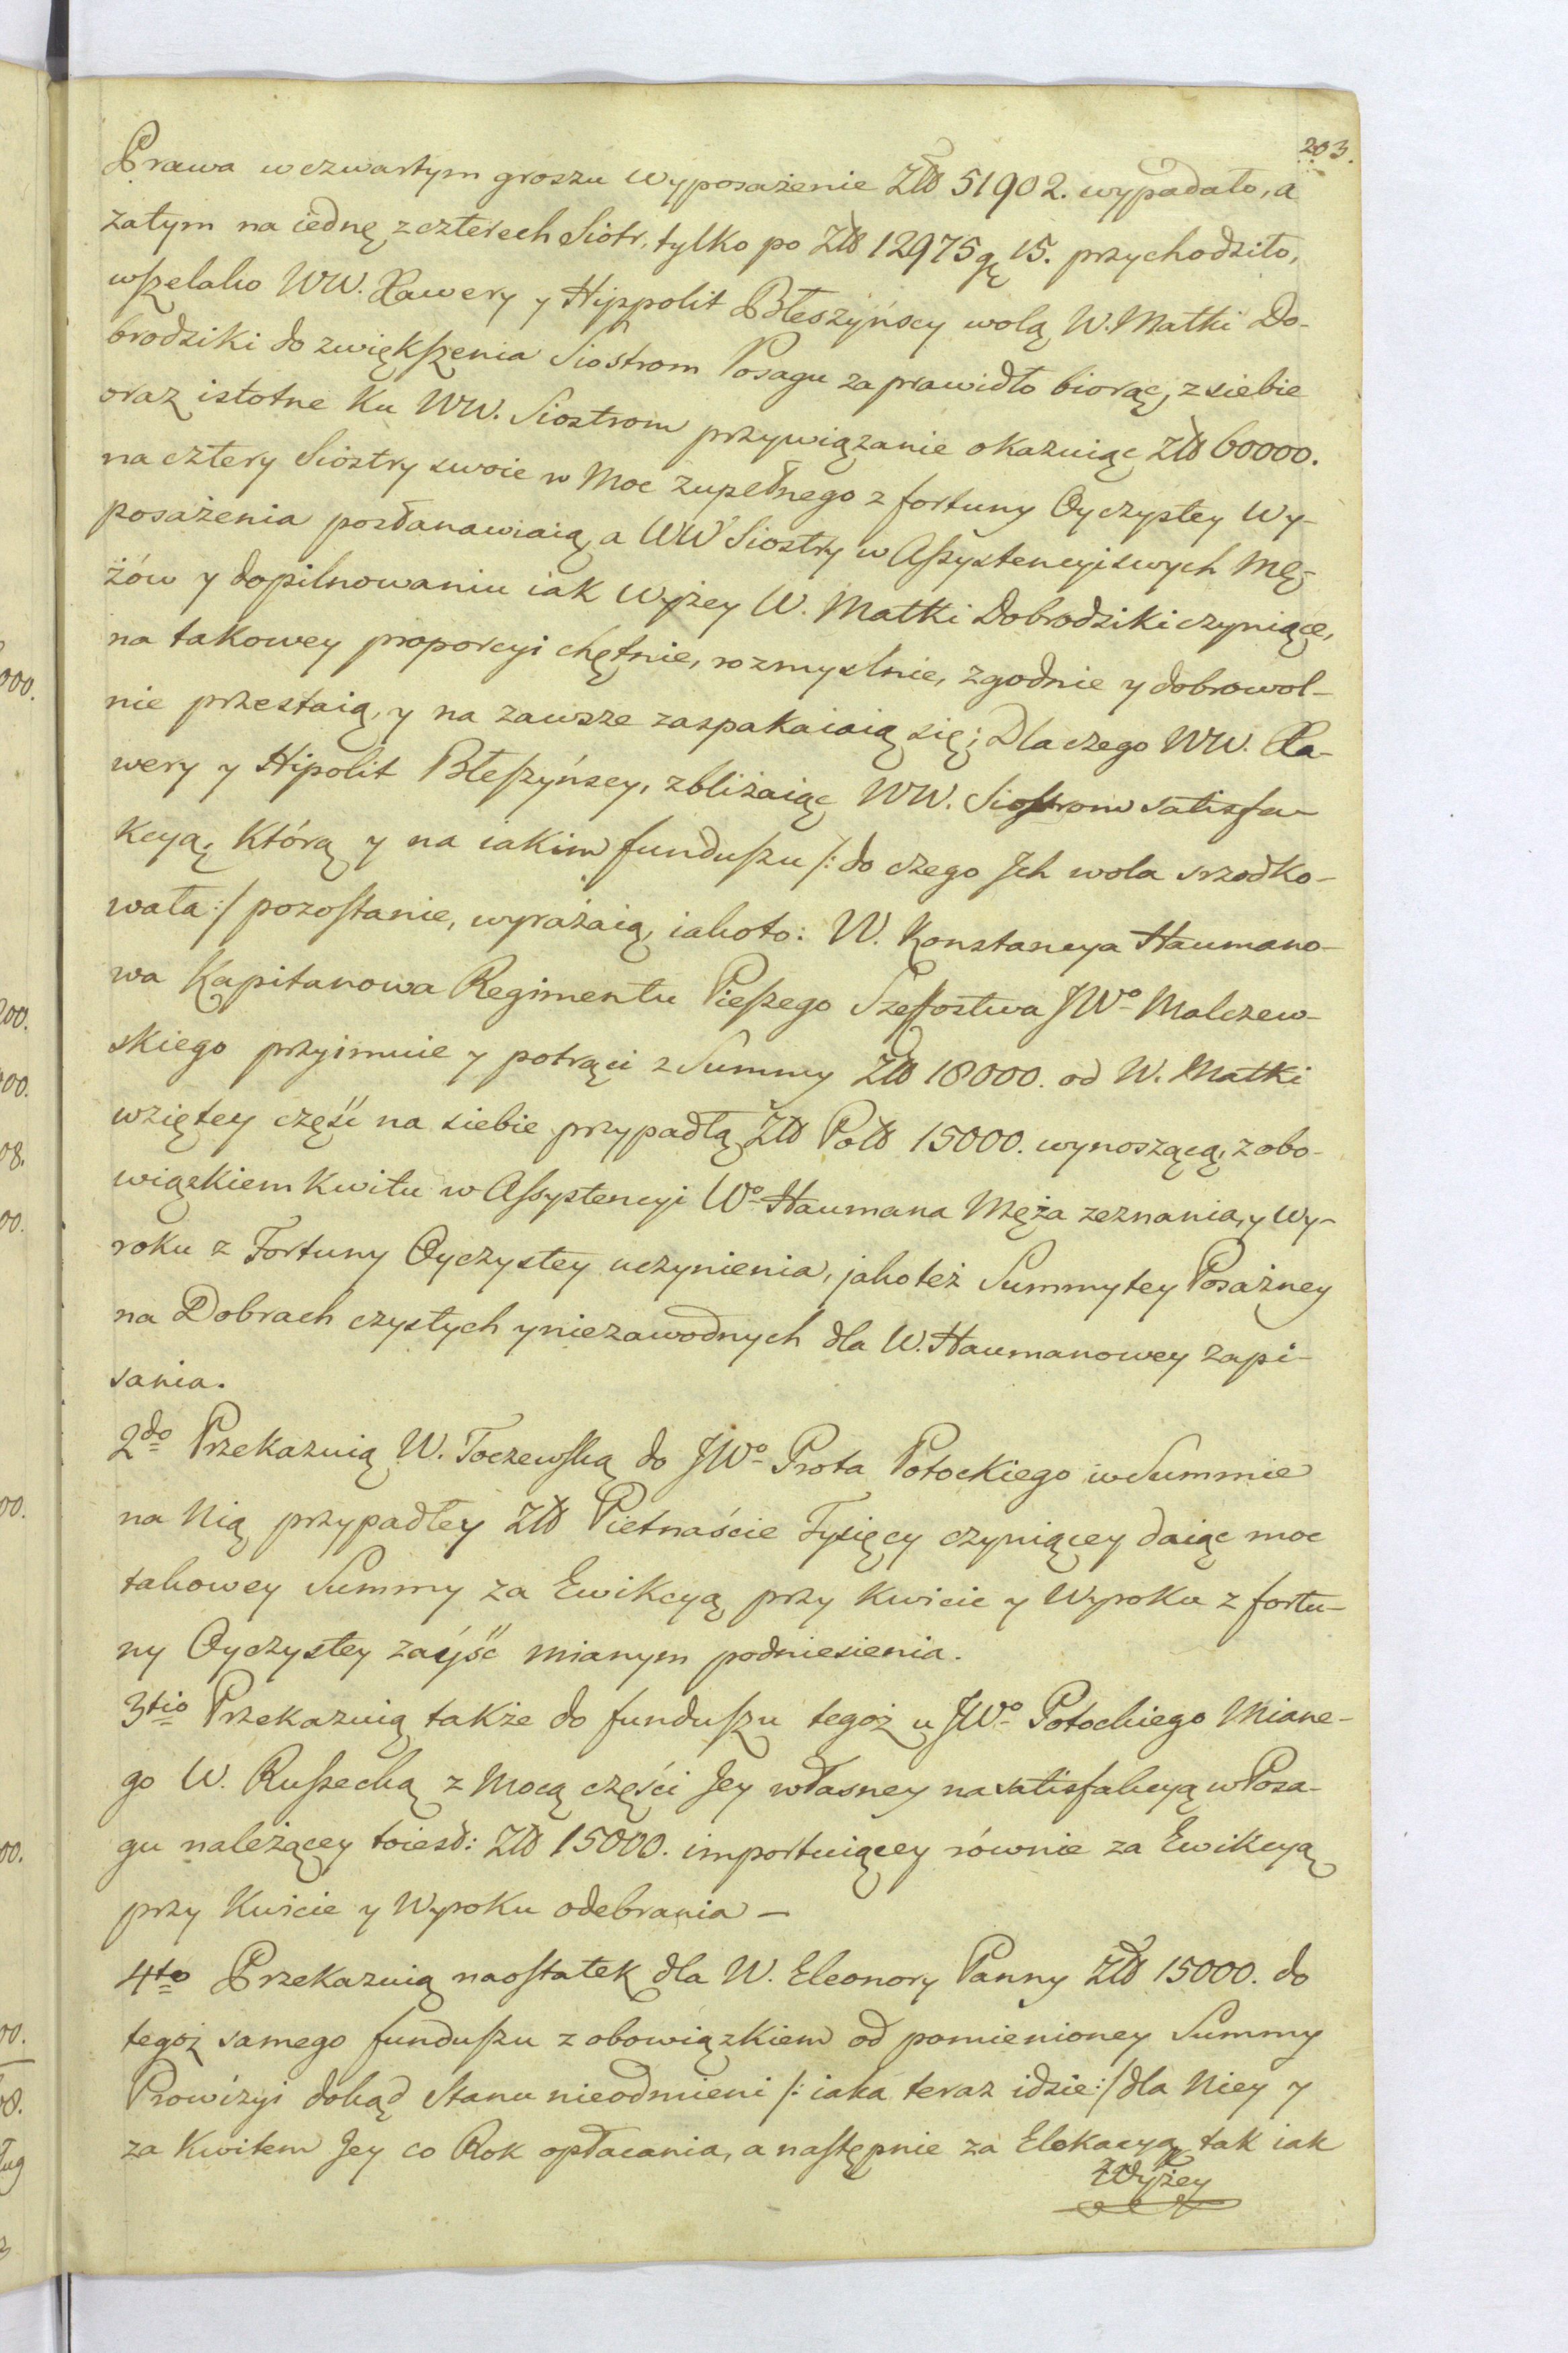 203.
Prawa w czwartym groszu Wyposażenie Złł 51902. wypadało, a
zatym na iednę z czterech Siotr, tylko po Złł 12975 gr 15. przychodziło,
wszelako WW. Xawery y Hippolit Błeszyńscy wolą W. Matki Do-
brodziki do zwiększenia Siostrom Posagu za prawidło biorąc, z siebie
oraz istotne ku WW. Siostrom przywiązanie okazuiąc Złł 60000.
na cztery Siostry swoie w Moc zupełnego z fortuny Oyczystey Wy-
posażenia postanawiaią, a WW Siostry w Assystencyi swych Mę-
żów y dopilnowaniu iak Wyżey W. Matki Dobrodziki czyniące,
na takowey proporcyi chętnie, rozmyslnie, zgodnie y dobrowol-
nie przestaią, y na zawsze zaspakaiaią się; Dla czego WW. Xa-
wery y Hipolit Błeszyńscy, zbliżaiąc WW. Siostrom satisfa-
kcyą, Którą y na iakim funduszu /: do czego Jch wola srzodko-
wała :/ pozostanie, wyrażaią, iakoto: W. Konstancya Haumano-
wa Kapitanowa Regimentu Pieszego Szefostwa JWo Malczew-
skiego przyimuie y potrąci z Summy Złł 18000. od W. Matki
wziętey część na siebie przypadłą Złł Pols 15000. wynoszącą, z obo-
wiązkiem Kwitu w Assystencyi Wo Haumana Męża zeznania, y Wy-
roku z Fortuny Oyczystey uczynienia, jako też Summy tey Posażney
na Dobrach czystych y niezawodnych dla W. Haumanowey zapi-
sania.
2do Przekazuią W. Toczewską do JWo Prota Potockiego w Summie
na Nią przypadłey Złł Pietnaście Tysięcy czyniącey daiąc moc
takowey Summy za Ewikcyą przy Kwicie y Wyroku z fortu-
ny Oyczystey zayść mianym podniesienia.
3tio Przekazuią także do funduszu tegoż u JWo Potockiego Miane-
go W. Ruszecką z Mocą części Jey własney na satisfakcyą w Posa-
gu należącey toiest: Złł 15000. importuiącey równie za Ewikcyą
przy Kwicie y Wyroku odebrania —
4to Przekazuią naostatek dla W. Eleonory Panny Złł 15000. do
tegoż samego funduszu z obowiązkiem od pomienioney Summy
Prowizyi dokąd Stanu nieodmieni /: iaka teraz idzie :/ dla Niey y
za Kwitem Jey co Rok opłacania, a następnie za Elokacyą tak iak
Wyżey